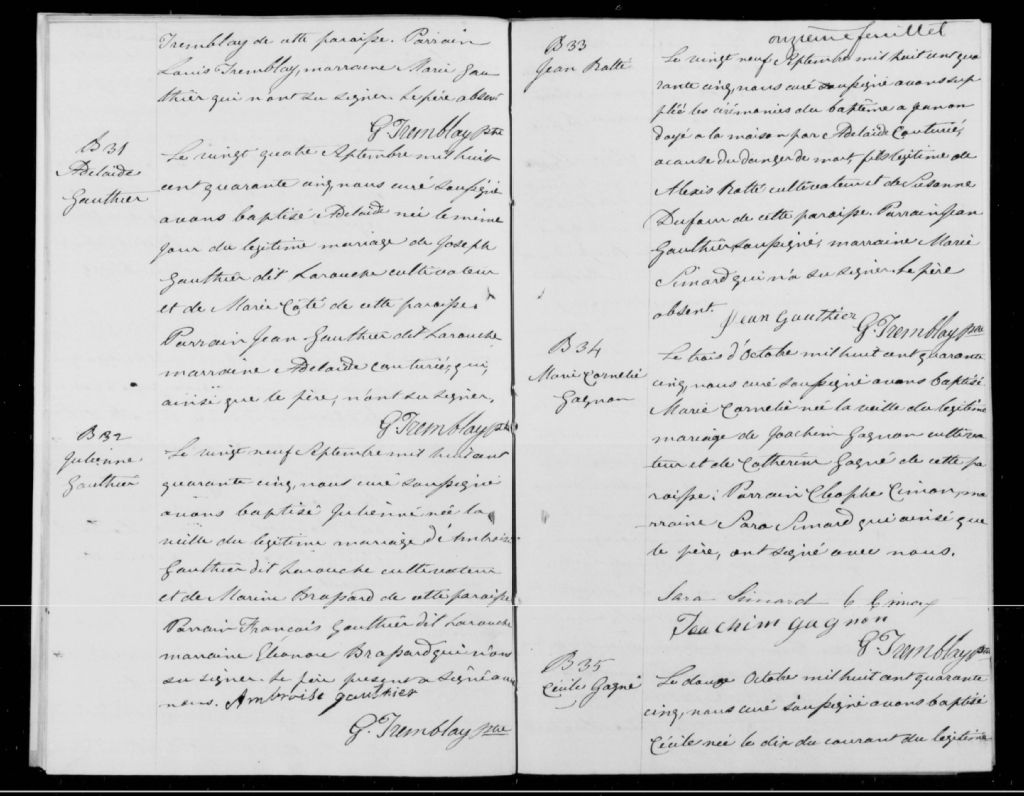 Tremblay de cette paroisse. Parrain
Louis Tremblay, marraine Marie Gau
thier qui n'ont su signer. Le père absent
G. Tremblay Ptre
B 31
Adelaide
Gauthier
Le vingt quatre Septembre mil huit
cent quarante cinq nous curé soussigné
avons baptisé Adelaide née le même
jour du legitime mariage de Joseph
Gauthier dit Larouche cultivateur
et de Marie Côté de cette paroisse.
Parrain Jean Gauthier dit Larouche
marraine Adelaide Couturié, qui,
ainsi que le père, n'ont su signer.
G. Tremblay Ptre
B 32
Julienne
Gauthier
Le vingt neuf Septembre mil huit cent
quarante cinq, nous curé soussigné
avons baptisé Julienne née la
veille du legitime mariage d'Ambroise
Gauthier dit Larouche cultivateur
et de Marine Brassard de cette paroisse
Parrain François Gauthier dit Larouche
marraine Eléonore Brassard qui n'ont
su signer. Le père present a signé avec
nous. Ambroise gauthier
G. Tremblay Ptre
onzième feuillet
B 33
Jean Ratté
Le vingt neuf Septembre mil huit cent qua
rante cinq, nous curé soussigné avons sup
pléé les cérémonies du baptême a Jean on
doyé a la maison par Adelaide Couturié,
a cause du danger de mort, fils legitime de
Alexis Ratté cultivateur et de Susanne
Dufour de cette paroisse. Parrain Jean
Gauthier soussigné, marraine Marie
Simard qui n'a su signer. Le père
absent.
Jean Gauthier
G. Tremblay Ptre
B 34
Marie Cornelie
Gagnon
Le trois d'Octobre mil huit cent quarante
cinq, nous curé soussigné avons baptisé
Marie Cornelie née la veille du legitime
mariage de Joachim Gagnon cultiva
teur et de Catherine Gagné de cette pa
roisse; Parrain Cléophe Cimon, ma
rraine Sara Simard qui ainsi que
le père, ont signé avec nous.
Sara Simard C Cimon
Joachim gagnon
G. Tremblay Ptre
B 35
Cécile Gagné
Le douze Octobre mil huit cent quarante
cinq, nous curé soussigné avons baptisé
Cécile née le dix du courant du legitime